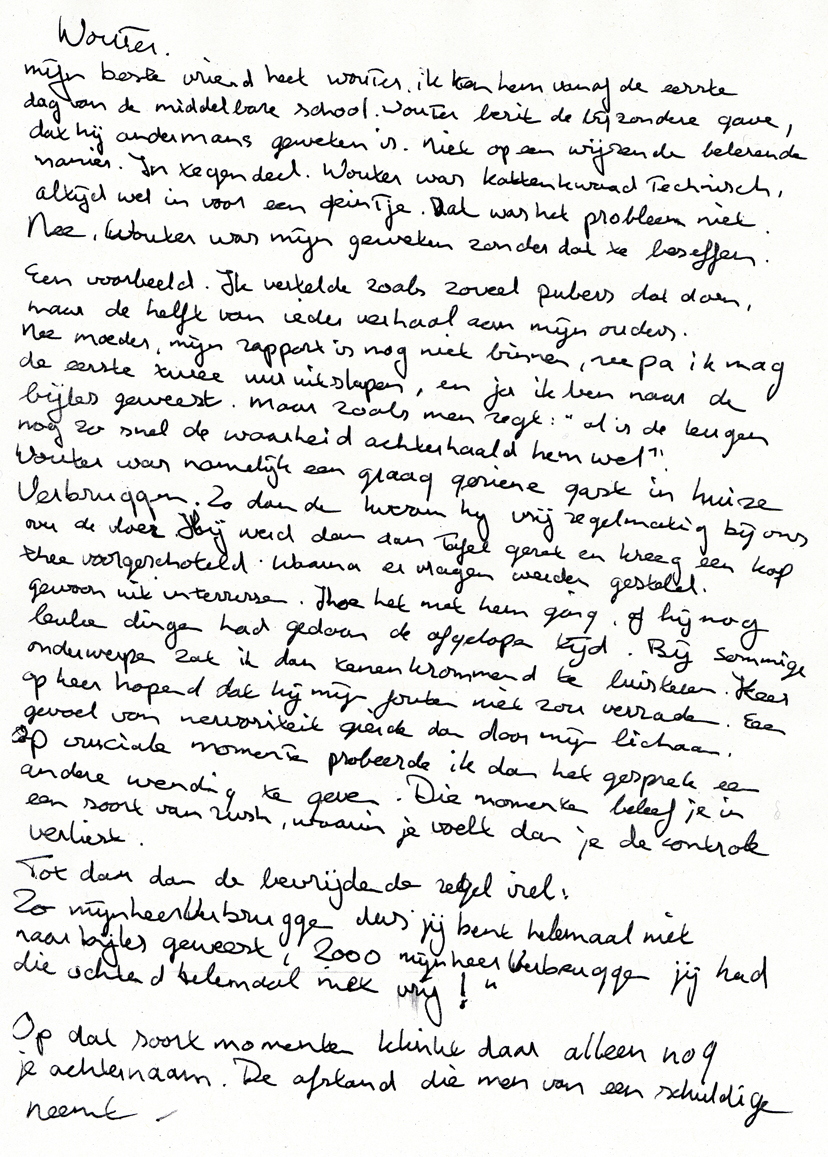 Wouter.
mijn beste vriend heet wouter. ik ken hem vanaf de eerste
dag van de middelbare school. Wouter bezit de bijzondere gave,
dat hij andermans geweten is. Niet op een wijzende belerende
manier. In tegendeel. Wouter was kattenkwaad Technisch,
altijd wel in voor een geintje. Dat was het probleem niet.
Nee, Wouter was mijn geweten zonder dat te beseffen.
Een voorbeeld. Ik vertelde zoals zoveel pubers dat doen,
maar de helft van ieder verhaal aan mijn ouders.
Nee moeder, mijn rapport is nog niet binnen, nee pa ik mag
de eerste twee uur uitslapen, en ja ik ben naar de
bijles geweest. Maar zoals men zegt: "al is de leugen
nog zo snel de waarheid achterhaald hem wel".
Wouter was namelijk een graag geziene gast in huize
Verbruggen. Zo dan de kwam hij vrij regelmatig bij ons
over de vloer. Hij werd dan aan Tafel gezet en kreeg een kop
thee voorgeschoteld. Waarna er vragen werden gesteld.
gewoon uit interesse. Hoe het met hem ging. of hij nog
leuke dingen had gedaan de afgelopen tijd. Bij sommige
onderwerpen zat ik dan tenenkrommend te luisteren. Keer
op keer hopend dat hij mijn fouten niet zou verraden. Een
gevoel van nervositeit gierde dan door mijn lichaam.
Op cruciale momenten probeerde ik dan het gesprek een
andere wending te geven. Die momenten beleef je in
een soort van rush, waarin je voelt dan je de controle
verliest.
Tot dan dan de bevrijdende regel viel:
Zo mijnheer Verbrugge dus jij bent helemaal niet
naar bijles geweest, Zooo mijnheer Verbrugge jij had
die ochtend helemaal niet vrij!"
Op dat soort momenten klinkt daar alleen nog
je achternaam. De afstand die men van een schuldige
neemt.